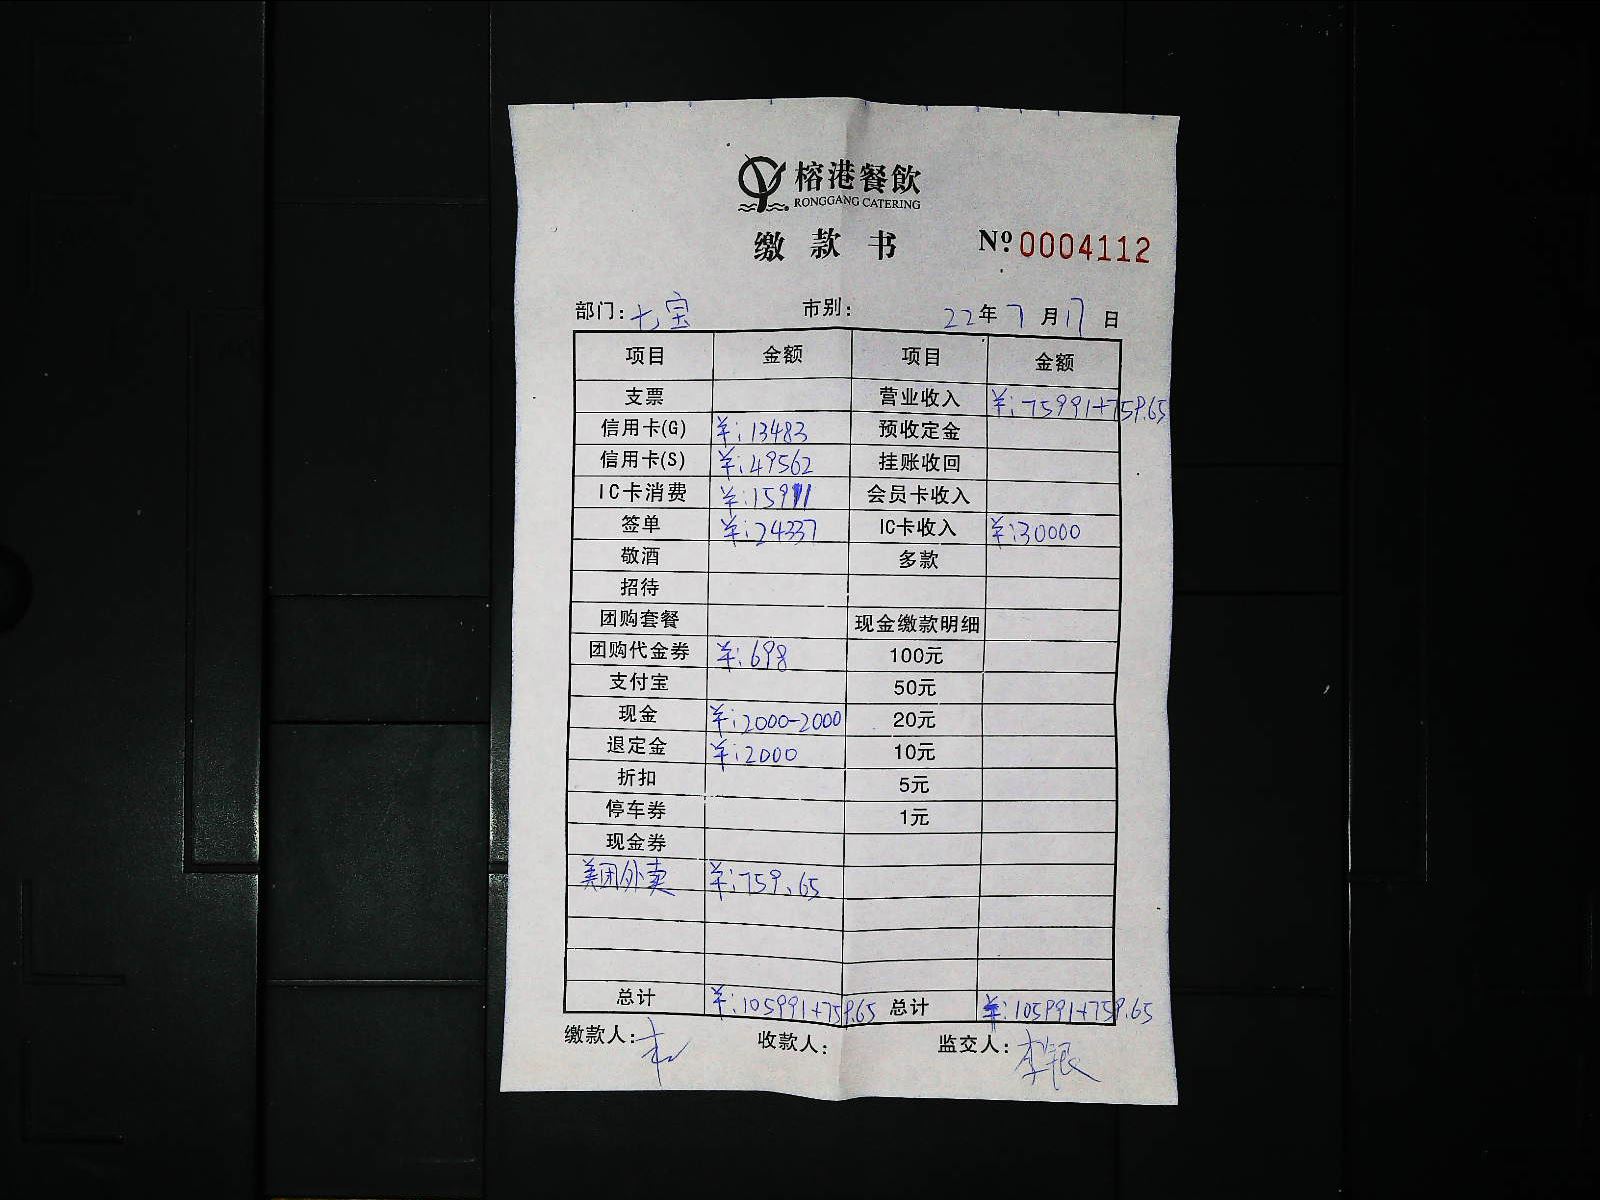 榕港餐飲
RONGGANG CATERING
缴款书 Nº 0004112
部门: 七宝 市别: 22年7月17日
项目 金额 项目 金额
支票 营业收入 ¥:75991+759.65
信用卡(G) ¥:13483 预收定金
信用卡(S) ¥:49562 挂账收回
IC卡消费 ¥:15911 会员卡收入
签单 ¥:24337 IC卡收入 ¥:30000
敬酒 多款
招待
团购套餐 现金缴款明细
团购代金券 ¥:698 100元
支付宝 50元
现金 ¥:2000-2000 20元
退定金 ¥:2000 10元
折扣 5元
停车券 1元
现金券
美团外卖 ¥:759.65
总计 ¥:105991+759.65 总计 ¥:105991+759.65
缴款人: 收款人: 监交人: 李银